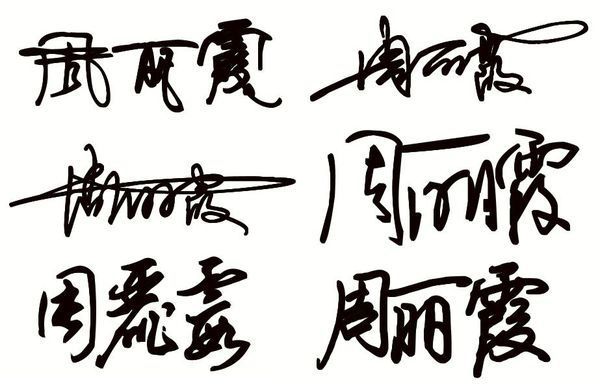 周丽霞 周丽霞
周丽霞 周丽霞
周麗霞 周丽霞